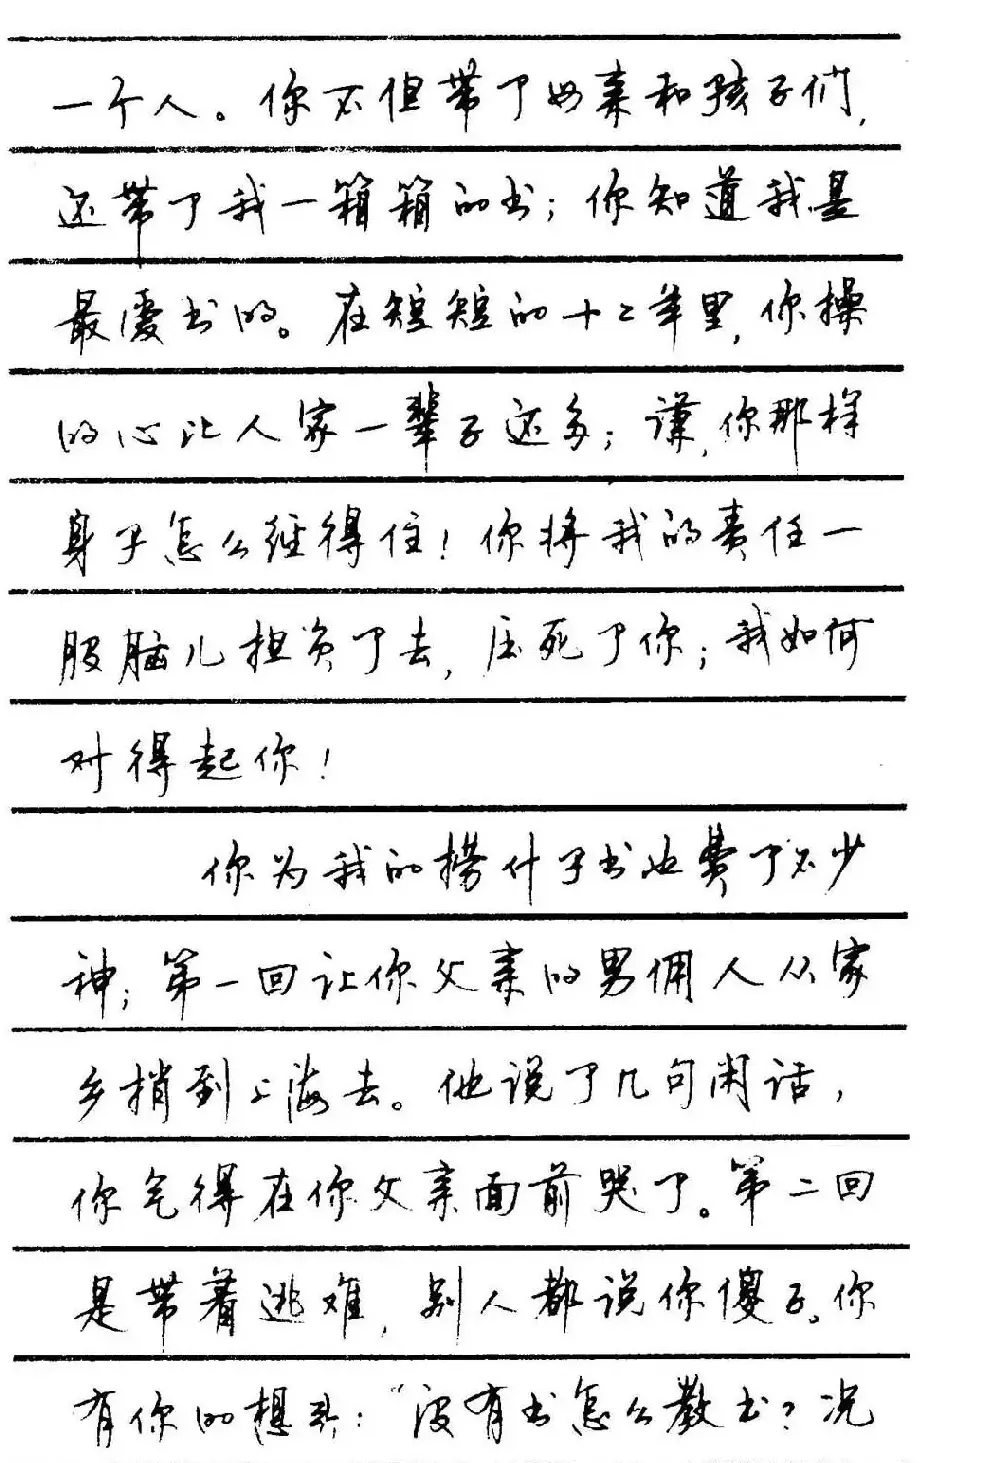 一个人。你不但带了母亲和孩子们,
还带了我一箱箱的书；你知道我是
最爱书的。在短短的十二年里,你操
的心比人家一辈子还多；谦,你那样
身子怎么经得住！你将我的责任一
股脑儿担负了去,压死了你；我如何
对得起你！
你为我的捞什子书也费了不少
神；第一回让你父亲的男佣人从家
乡捎到上海去。他说了几句闲话,
你气得在你父亲面前哭了。第二回
是带着逃难,别人都说你傻子。你
有你的想头：“没有书怎么教书？况